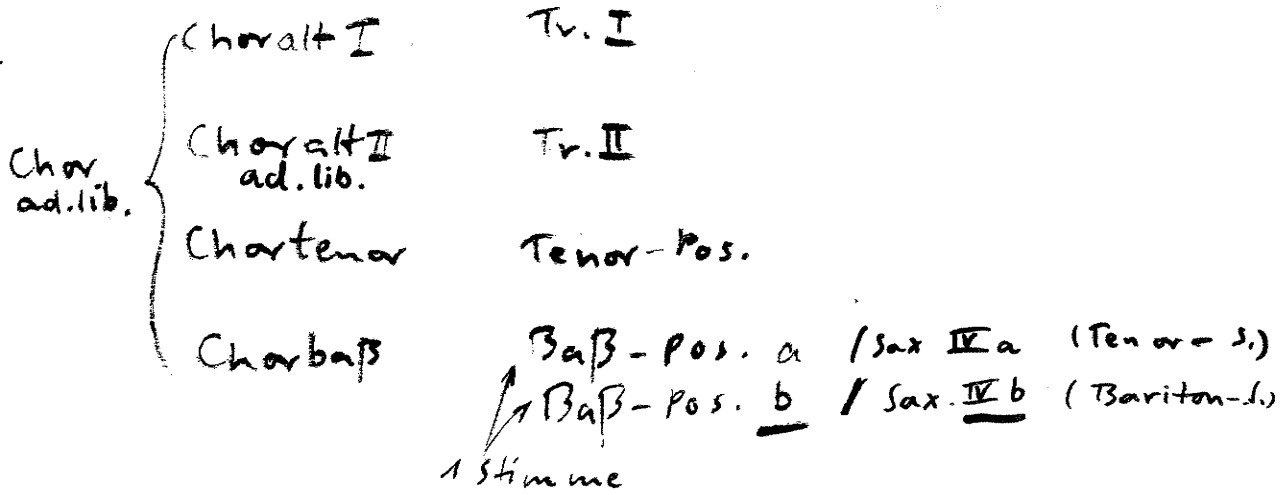 Choralt I Tr. I
Choralt II Tr. II
Chor ad. lib.
ad. lib.
Chortenor Tenor-Pos.
Chorbaß Baß-Pos. a / Sax IV a (Tenor-S.)
Baß-Pos. b / Sax. IV b (Bariton-S.)
1 Stimme